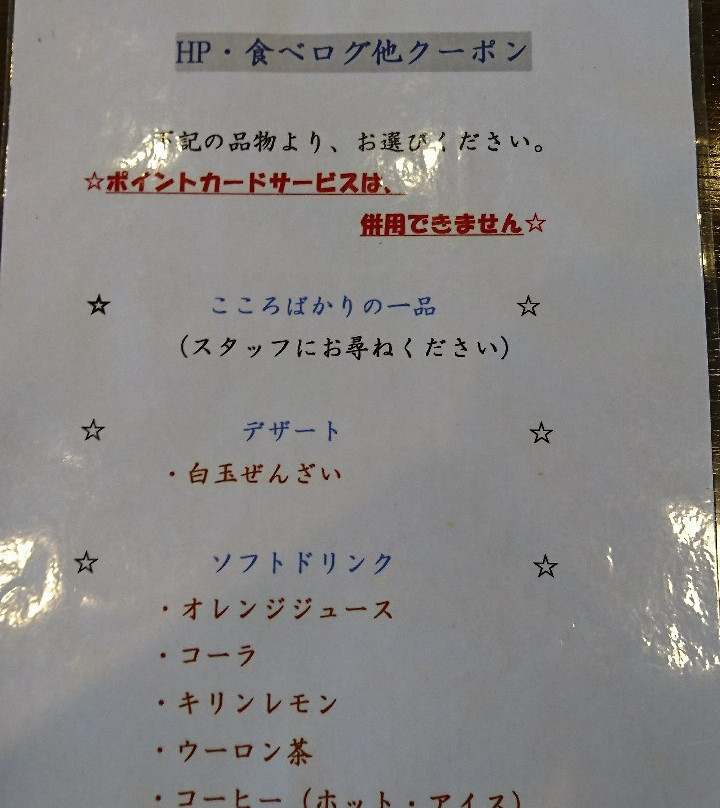 HP・食べログ他クーポン
下記の品物より、お選びください。
☆ポイントカードサービスは、
併用できません☆
☆ こころばかりの一品 ☆
（スタッフにお尋ねください）
☆ デザート ☆
・白玉ぜんざい
☆ ソフトドリンク ☆
・オレンジジュース
・コーラ
・キリンレモン
・ウーロン茶
・コーヒー（ホット・アイス）